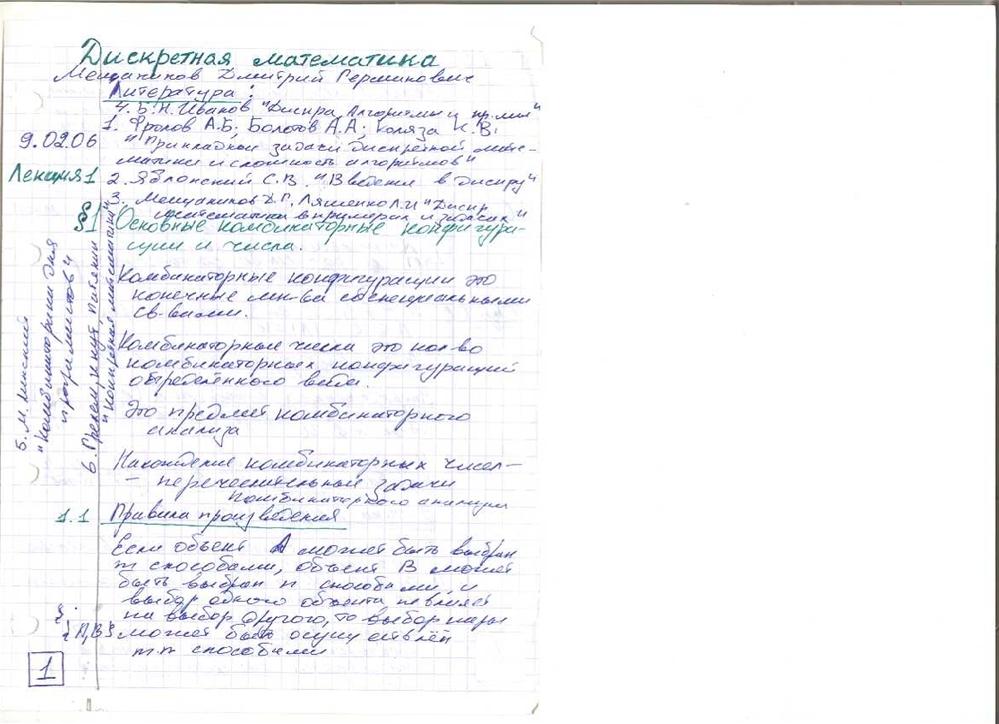 Дискретная математика
Мещанинов Дмитрий Германович
Литература:
4. Б.Н. Иванов "Дискра, Алгоритмы и пр.ммы"
1. Фролов А.Б; Болотов А.А; Коляза К.В.
"Прикладной задачи дискретной мате-
матики и сложность алгоритмов"
9.02.06
Лекция 1
2. Яблонский С.В. "Введение в дискру"
3. Мещанинов Д.Г, Ляшенко Л.И "Дискр
математика в примерах и задачах"
5. М. Липский
"Комбинаторики для
программистов"
6. Грехем, Кнут, Паташник
"Конкретная математика"
§1 Основные комбинаторные конфигура-
ции и числа.
Комбинаторные конфигурации это
конечные мн-ва со специальными
св-вами.
Комбинаторные числа это кол-во
комбинаторных конфигураций
определённого вида.
Это предмет комбинаторного
анализа
Нахождение комбинаторных чисел-
- перечеслительные задачи
комбинаторного анализа
1.1 Правила произведения
Если объект А может быть выбран
m способами, объект В может
быть выбран n способами и
выбор одного объекта не влияет
на выбор другого, то выбор пары
{А,В} может быть осуществлён
m·n способами
1